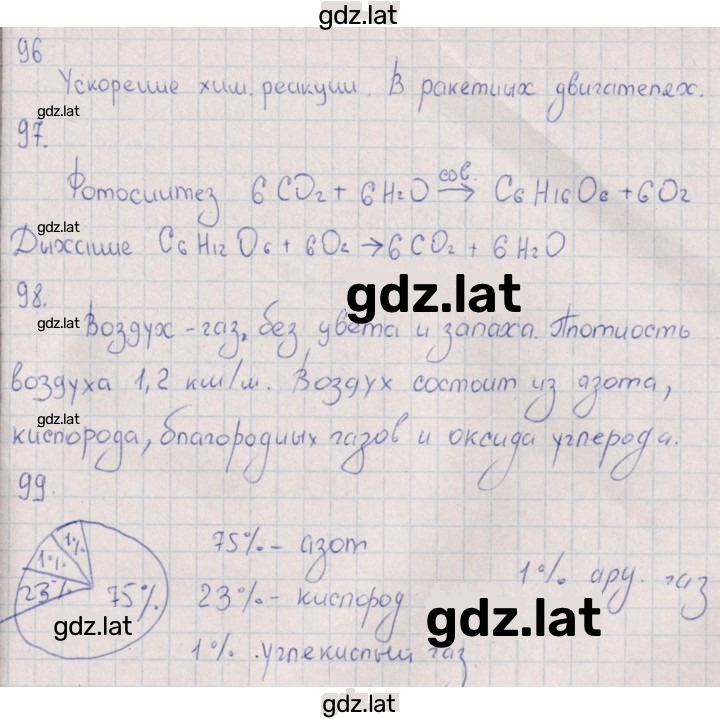 gdz.lat
96
Ускорение хим. реакции. В ракетных двигателях.
gdz.lat
97.
Фотосинтез 6CO2 + 6H2O сов.→ C6H16O6 + 6O2
gdz.lat
Дыхание C6H12O6 + 6O2 → 6CO2 + 6H2O
gdz.lat
98.
gdz.lat
Воздух - газ, без цвета и запаха. Плотность
воздуха 1,2 км/м. Воздух состоит из азота,
gdz.lat
кислорода, благородных газов и оксида углерода.
99.
1%
1%
23% 75%
gdz.lat
75% - азот
23% - кислород
1% углекислый газ
1% дру. газ
gdz.lat
gdz.lat